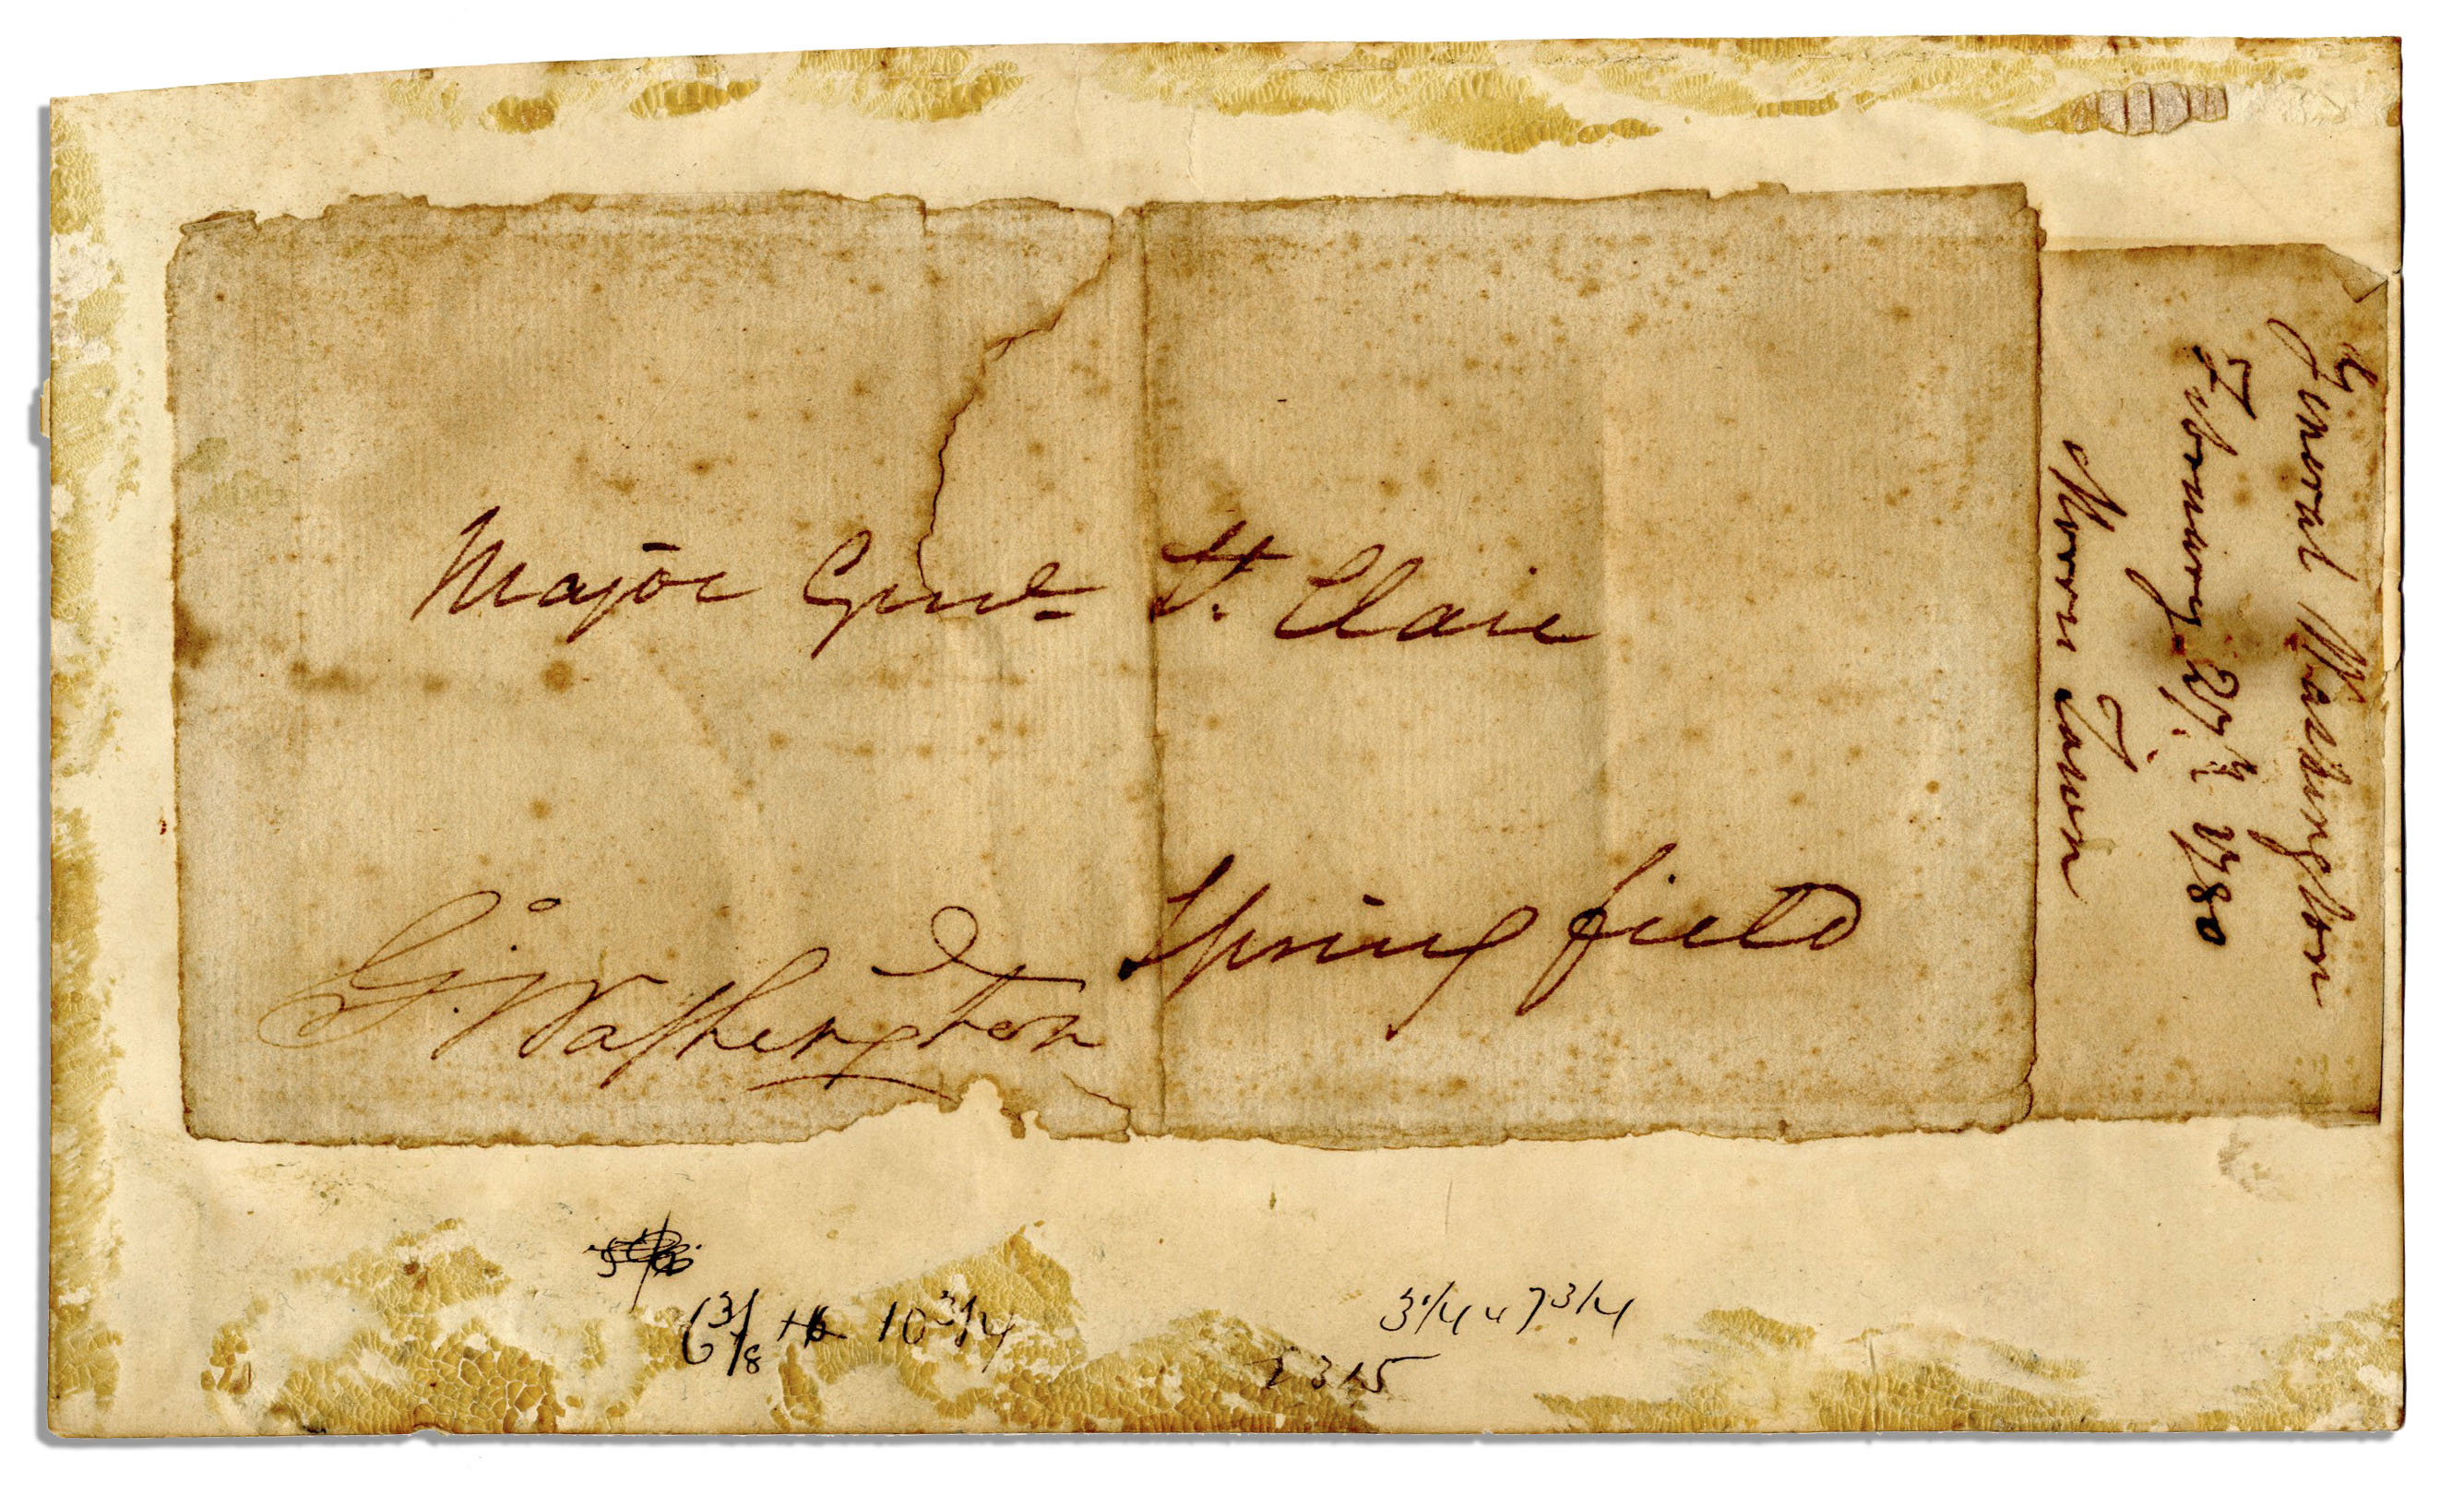 Major Genl. St. Clair
Springfield
G:Washington
General Washington
February 27th 1780
Morris Town
6 3/8 10 3/4
3 1/4 7 3/4